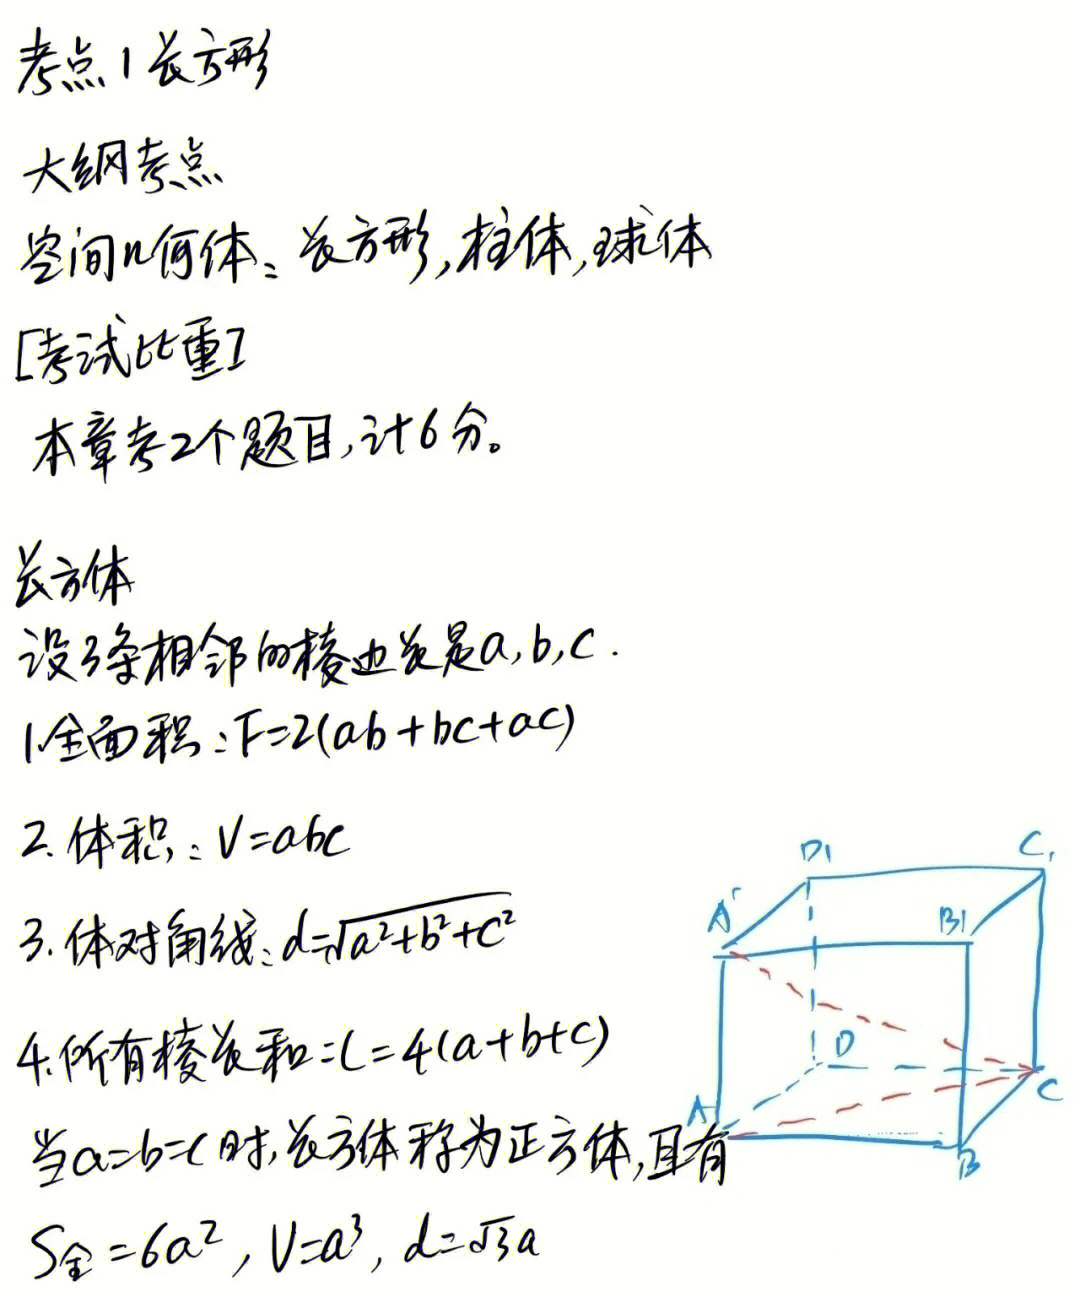 考点1长方形
大纲考点
空间几何体：长方形,柱体,球体
[考试比重]
本章考2个题目,计6分。
长方体
设3条相邻的棱边长是a,b,c.
1.全面积:F=2(ab+bc+ac)
2.体积:V=abc
3.体对角线:d=√a²+b²+c²
4.所有棱长和:l=4(a+b+c)
当a=b=c时,长方体称为正方体,且有
S全=6a²,V=a³,d=√3a
D1
C1
A'
B1
D
C
A
B